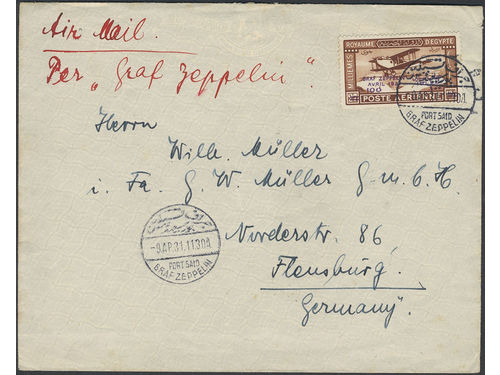 Air Mail.
Per „Graf Zeppelin".
ROYAUME D'EGYPTE
MILLIEMES
GRAF ZEPPELIN
AVRIL 1931
100
POSTE AERIENNE
PORT SAID
GRAF ZEPPELIN
Herrn
Wilh. Müller
i. Fa. G. W. Müller G.m.b.H.
Norderstr. 86
Flensburg.
Germany.
-9.AP.31.1130A
PORT SAID
GRAF ZEPPELIN